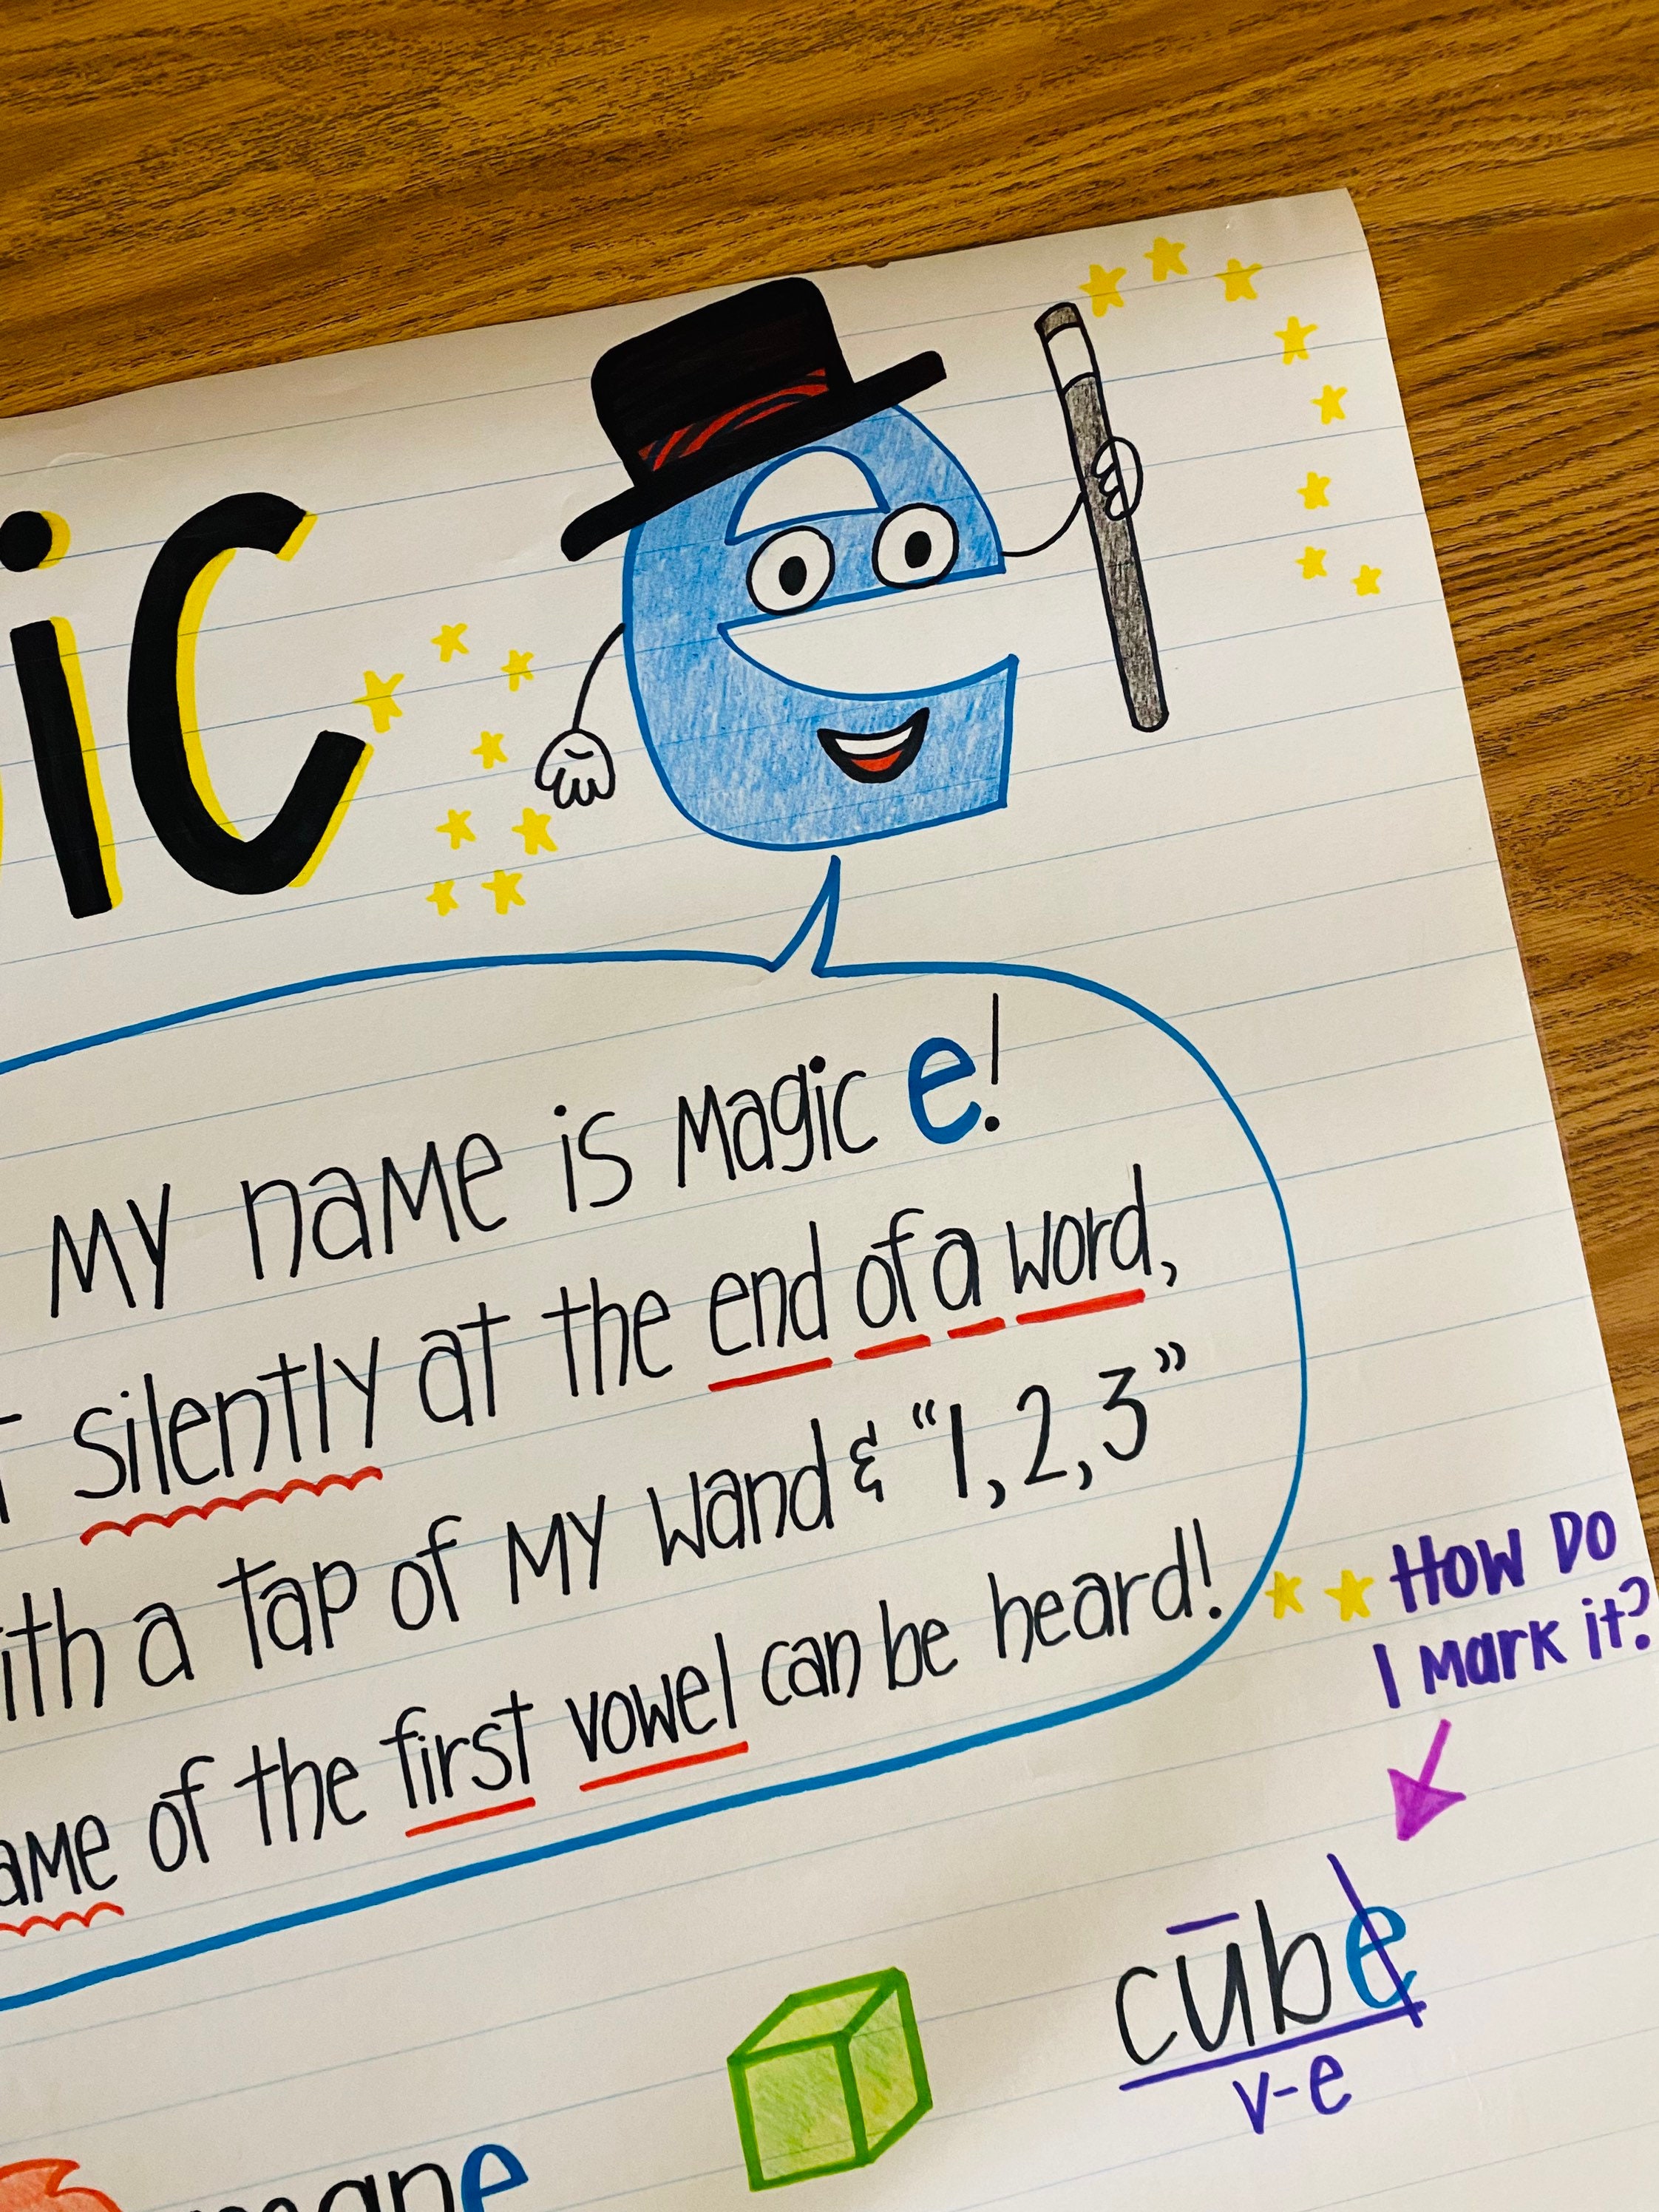 ic e
My name is Magic e!
silently at the end of a word,
ith a tap of my wand & “1, 2, 3”
ame of the first vowel can be heard!
How Do
I Mark it?
cūbe
v-e
mane